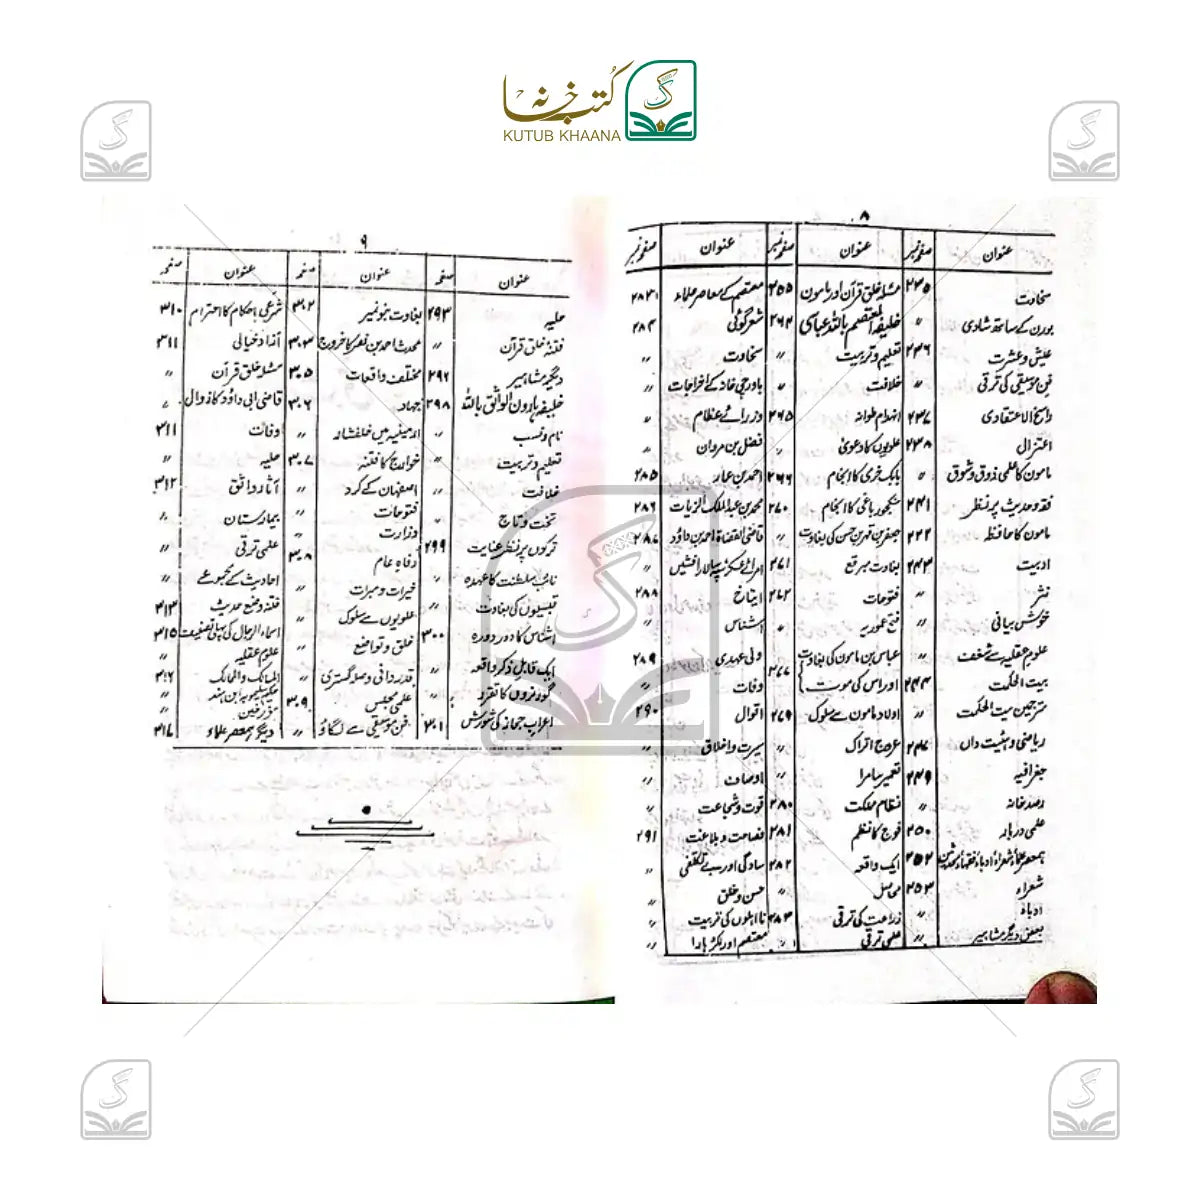 کتب خانہ
KUTUB KHAANA
۸
عنوان
صفحہ نمبر
عنوان
صفحہ نمبر
عنوان
صفحہ نمبر
سخاوت ۲۳۵
بورن کے ساتھ شادی 〃
عیش وعشرت ۲۳۶
فن موسیقی کی ترقی 〃
راسخ الاعتقادی ۲۳۷
اعتزال ۲۳۸
مامون کا علمی ذوق وشوق 〃
فقہ وحدیث پر نظر ۲۴۱
مامون کا حافظہ
ادبیت ۲۴۳
نثر 〃
خوش بیانی 〃
علوم عقلیہ سے شغف
بیت الحکمت ۲۴۴
مترجمین بیت الحکمت 〃
ریاضی وہیئیت داں ۲۴۷
جغرافیہ ۲۴۹
رصدخانہ 〃
علمی دربار ۲۵۰
۲۵۲
شعراء ۲۵۳
ادباء 〃
بعض دیگر مشاہیر 〃
مسئلہ خلق قرآن اور مامون ۲۵۵
خلیفہ المعتصم باللہ عباسی ۲۶۳
تعلیم وتربیت 〃
خلافت 〃
انہدام طوانہ ۲۶۵
علویوں کا دعویٰ 〃
بابک خرمی کا انجام ۲۶۶
منکجور باغی کا انجام ۲۷۰
بغاوت مبرقع ۲۷۱
فتوحات ۲۷۲
فتح عموریہ 〃
عباس بن مامون کی بغاوت
اور اس کی موت ۲۷۷
اولاد مامون سے سلوک ۲۷۹
عروج اتراک
تعمیر سامرا 〃
نظام مملکت ۲۸۰
فوج کا نظم ۲۸۱
ایک واقعہ ۲۸۲
محاصل 〃
زراعت کی ترقی ۲۸۳
علمی ترقی 〃
معتصم کے معاصر علماء ۲۸۳
شعر گوئی ۲۸۴
سخاوت 〃
باورچی خانہ کے اخراجات 〃
وزرائے عظام 〃
فضل بن مروان 〃
احمد بن عمار ۲۸۵
محمد بن عبدالملک الزیات ۲۸۶
قاضی القضاة احمد بن داؤد ۲۸۷
ایتاخ ۲۸۸
اشناس 〃
ولی عہدی ۲۸۹
وفات 〃
اقوال ۲۹۰
سیرت واخلاق 〃
اوصاف 〃
قوت وشجاعت 〃
فصاحت وبلاغت ۲۹۱
سادگی اور بے تکلفی 〃
حسن وخلق
نااہلوں کی تربیت 〃
معتصم اور لکڑہارا 〃
۹
عنوان
صفحہ
عنوان
صفحہ
عنوان
صفحہ
حلیہ ۲۹۳
فتنہ خلق قرآن 〃
دیگر مشاہیر ۲۹۶
خلیفہ ہارون الواثق باللہ ۲۹۸
نام ونسب 〃
تعلیم وتربیت 〃
خلافت 〃
تخت وتاج 〃
ترکوں پر نظر عنایت ۲۹۹
نائب سلطنت کا عہدہ 〃
قبیسیوں کی بغاوت 〃
اشناس کا دور دورہ ۳۰۰
ایک قابل ذکر واقعہ 〃
گورنروں کا تقرر 〃
اعراب حجاز کی شورش ۳۰۱
بغاوت بنو نمیر ۳۰۲
محدث احمد بن نصر کا خروج ۳۰۳
مختلف واقعات ۳۰۵
جہاد ۳۰۶
ارمینیہ میں خلفشار 〃
خوارج کا فتنہ ۳۰۷
اصفہان کے کرد 〃
فتوحات 〃
وزارت
رفاہ عام ۳۰۸
خیرات ومبرات
علویوں سے سلوک 〃
خلق وتواضع 〃
قدر دانی وعدل گستری 〃
علمی مجلس ۳۰۹
فن موسیقی سے لگاؤ 〃
شرعی احکام کا احترام ۳۱۰
آزاد خیالی ۳۱۱
مسئلہ خلق قرآن 〃
قاضی ابی داؤد کا زوال 〃
وفات ۳۱۱
حلیہ 〃
آثار واثق ۳۱۲
بیمارستان 〃
علمی ترقی 〃
احادیث کے مجموعے 〃
فتنہ وضع حدیث ۳۱۳
اسماء الرجال کی پہلی تصنیف ۳۱۵
علوم عقلیہ 〃
المسالک والممالک ۳۱۶
مورخین 〃
دیگر ہمعصر علماء ۳۱۷